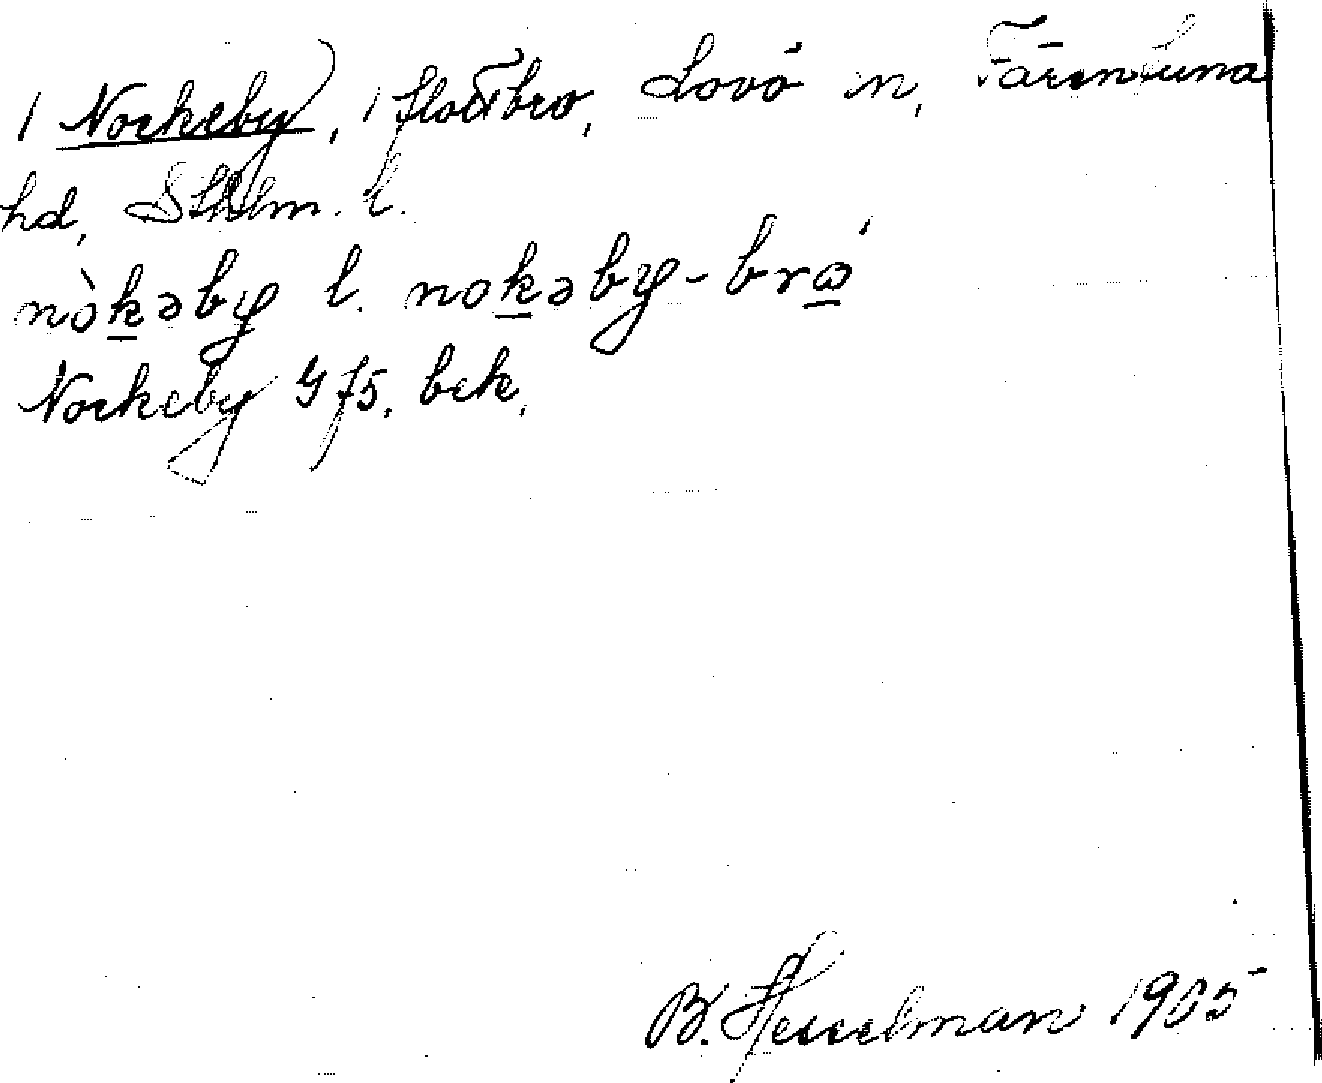 1 Nockeby, 1 flottbro, Lovö sn, Färentuna
hd, Sthlm. l.
nòkəby l. nokəby-brω´
Nockeby Gfs. bek.
B. Hesselman 1905